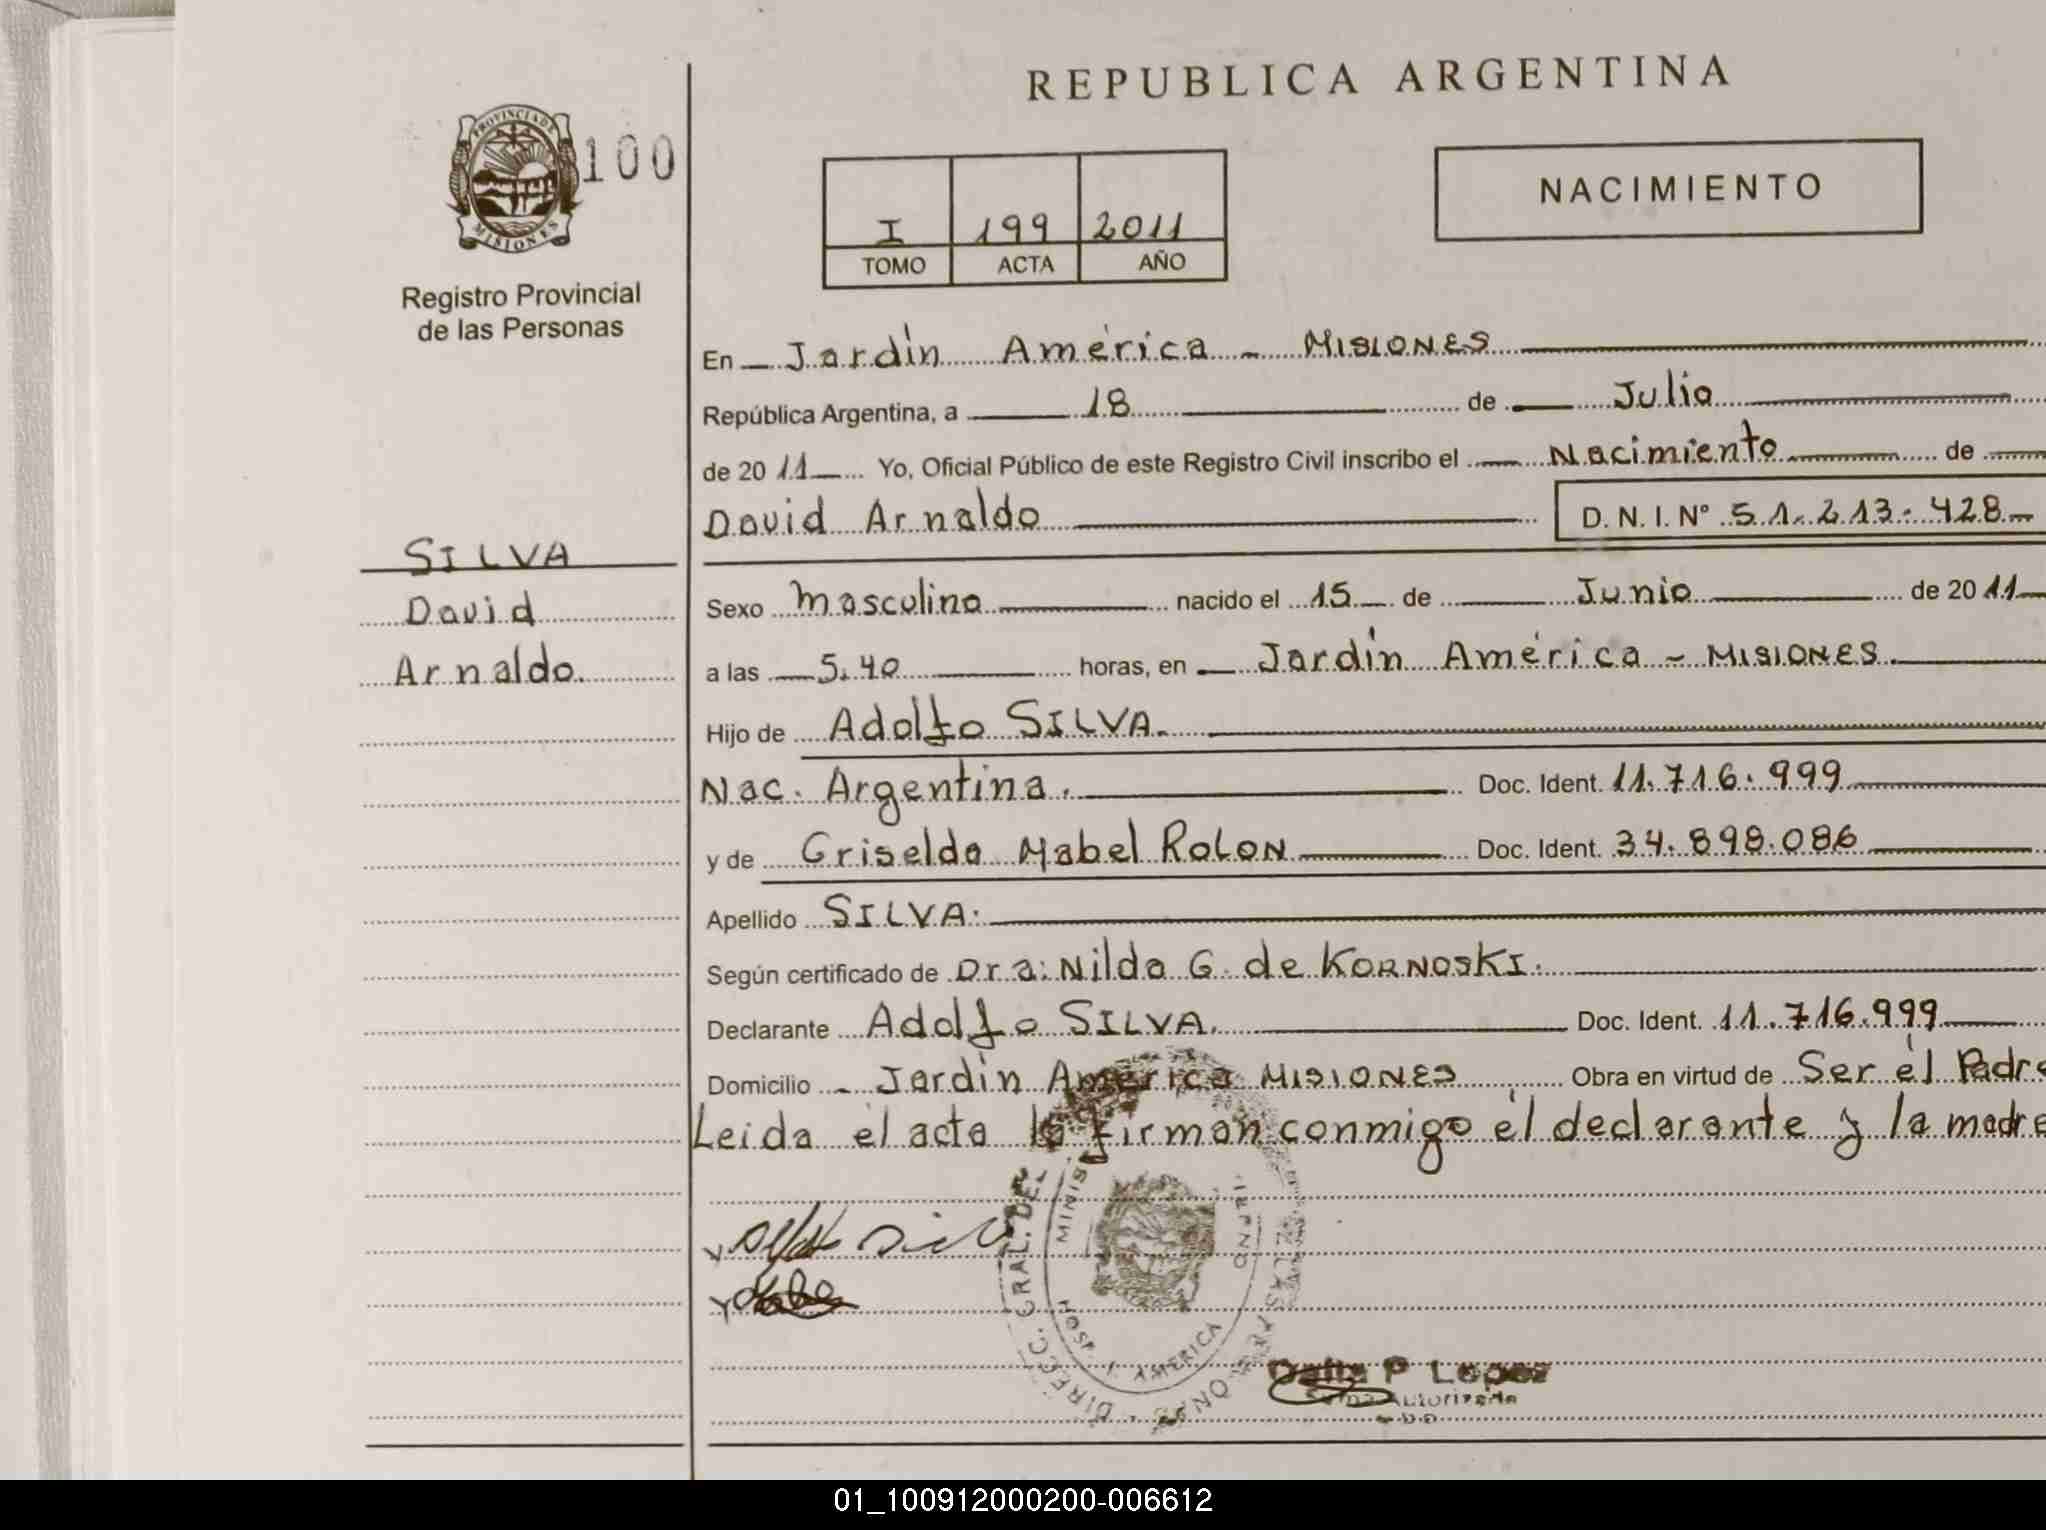 REPUBLICA ARGENTINA
PROVINCIA DE
MISIONES
100
NACIMIENTO
I 199 2011
TOMO ACTA AÑO
Registro Provincial
de las Personas
En Jardín América - MISIONES
República Argentina, a 18 de Julio
de 2011 Yo, Oficial Público de este Registro Civil inscribo el Nacimiento de
David Arnaldo D.N.I. Nº 51.213.428
SILVA
David
Arnaldo.
Sexo Masculino nacido el 15 de Junio de 2011
a las 5.40 horas, en Jardín América - MISIONES.
Hijo de Adolfo SILVA.
Nac. Argentina. Doc. Ident. 11.716.999
y de Griselda Mabel ROLON Doc. Ident. 34.898.086
Apellido SILVA.
Según certificado de Dra: Nilda G. de KORNOSKI.
Declarante Adolfo SILVA. Doc. Ident. 11.716.999
Domicilio - Jardín América MISIONES Obra en virtud de Ser él Padre
Leida él acta la firman conmigo él declarante y la madre
DIRECC. GRAL. DEL
MINIS
AMERICA
P Lopez
Autorizada
01_100912000200-006612